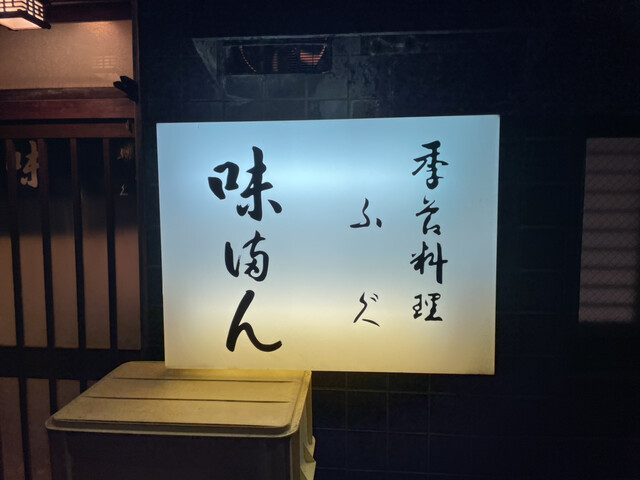 季節料理
ふぐ
味満ん
味